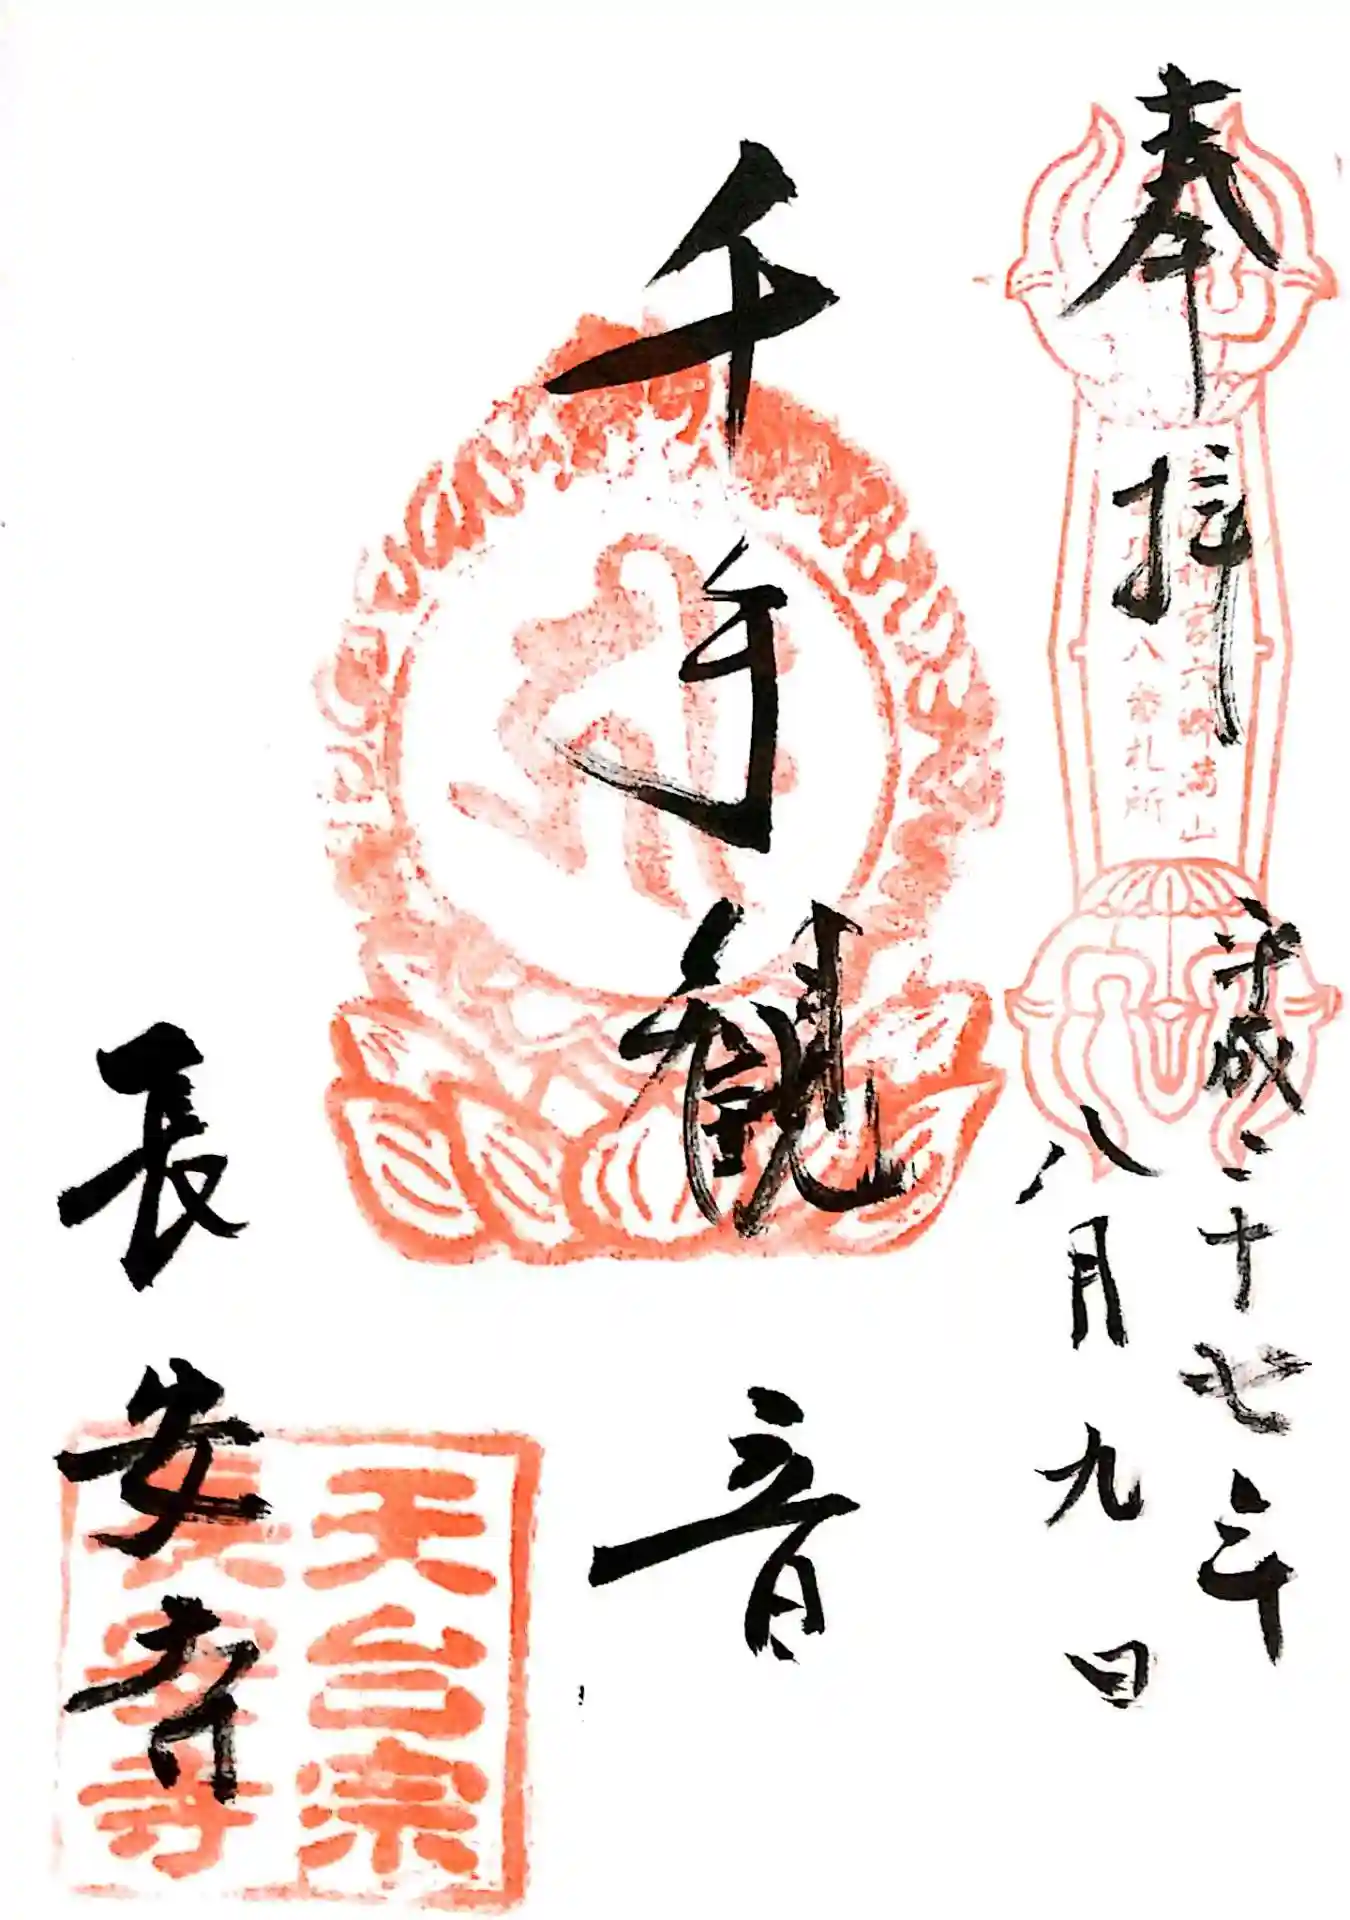 奉拝
六郷満山
八番札所
平成二十七年
八月九日
千手観音
長安寺
天台宗
長安寺